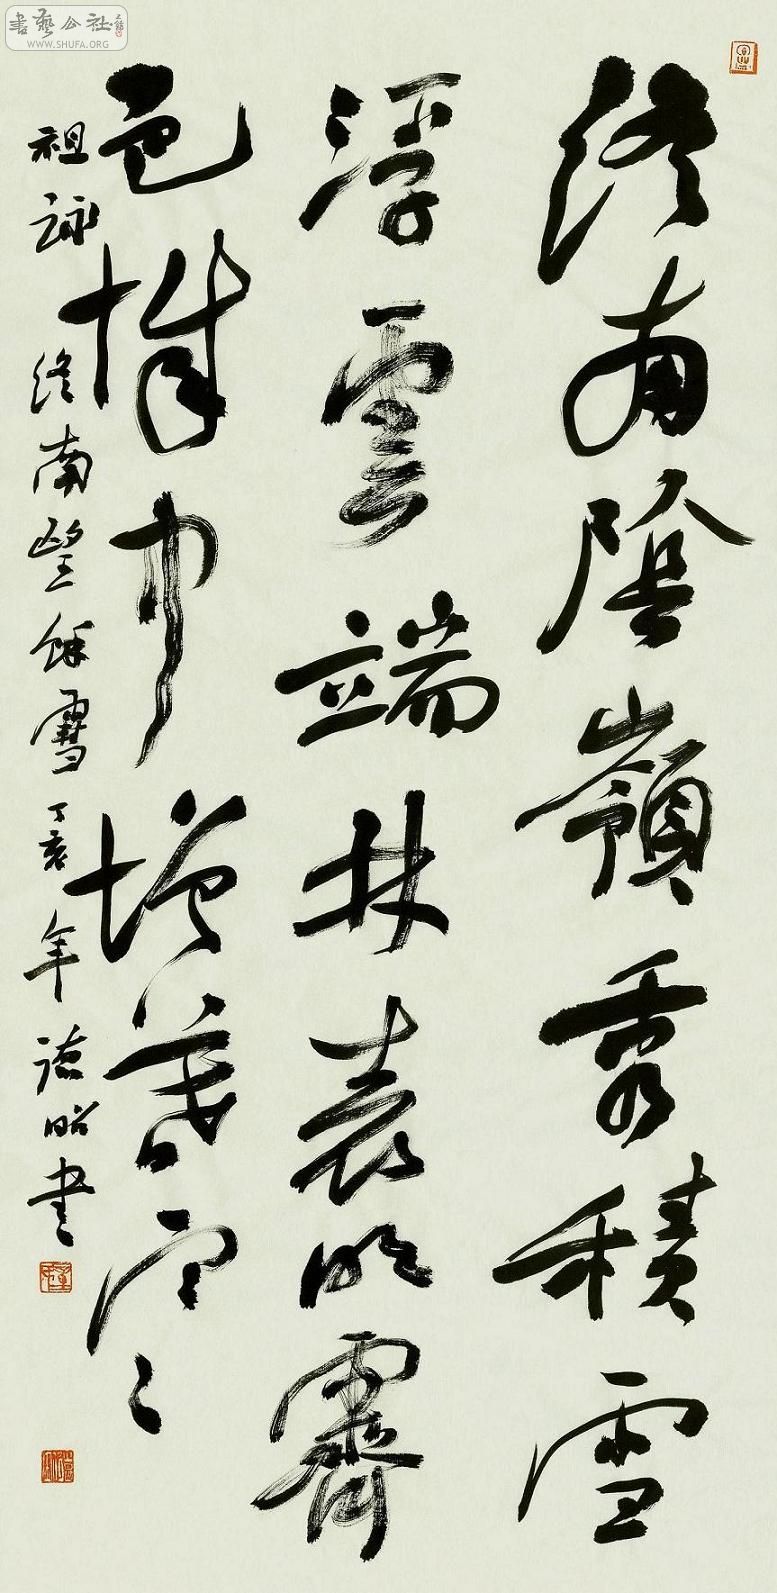 書藝公社
WWW.SHUFA.ORG
終南陰嶺秀積雪
浮雲端林表明霽
色城中增暮寒
祖詠終南望餘雪丁亥年德昭書